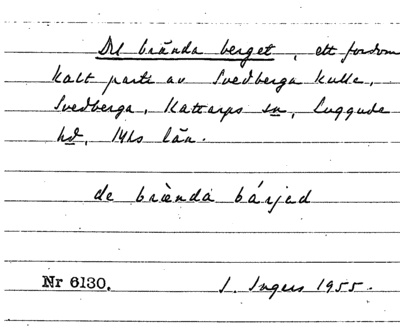 Det brända berget, ett fordom
kalt parti av Svedberga kulle,
Svedberga, Kattarps sn, Luggude
hd, Mhs län.
de brænda bárjed
Nr 6130. I. Ingers 1955.